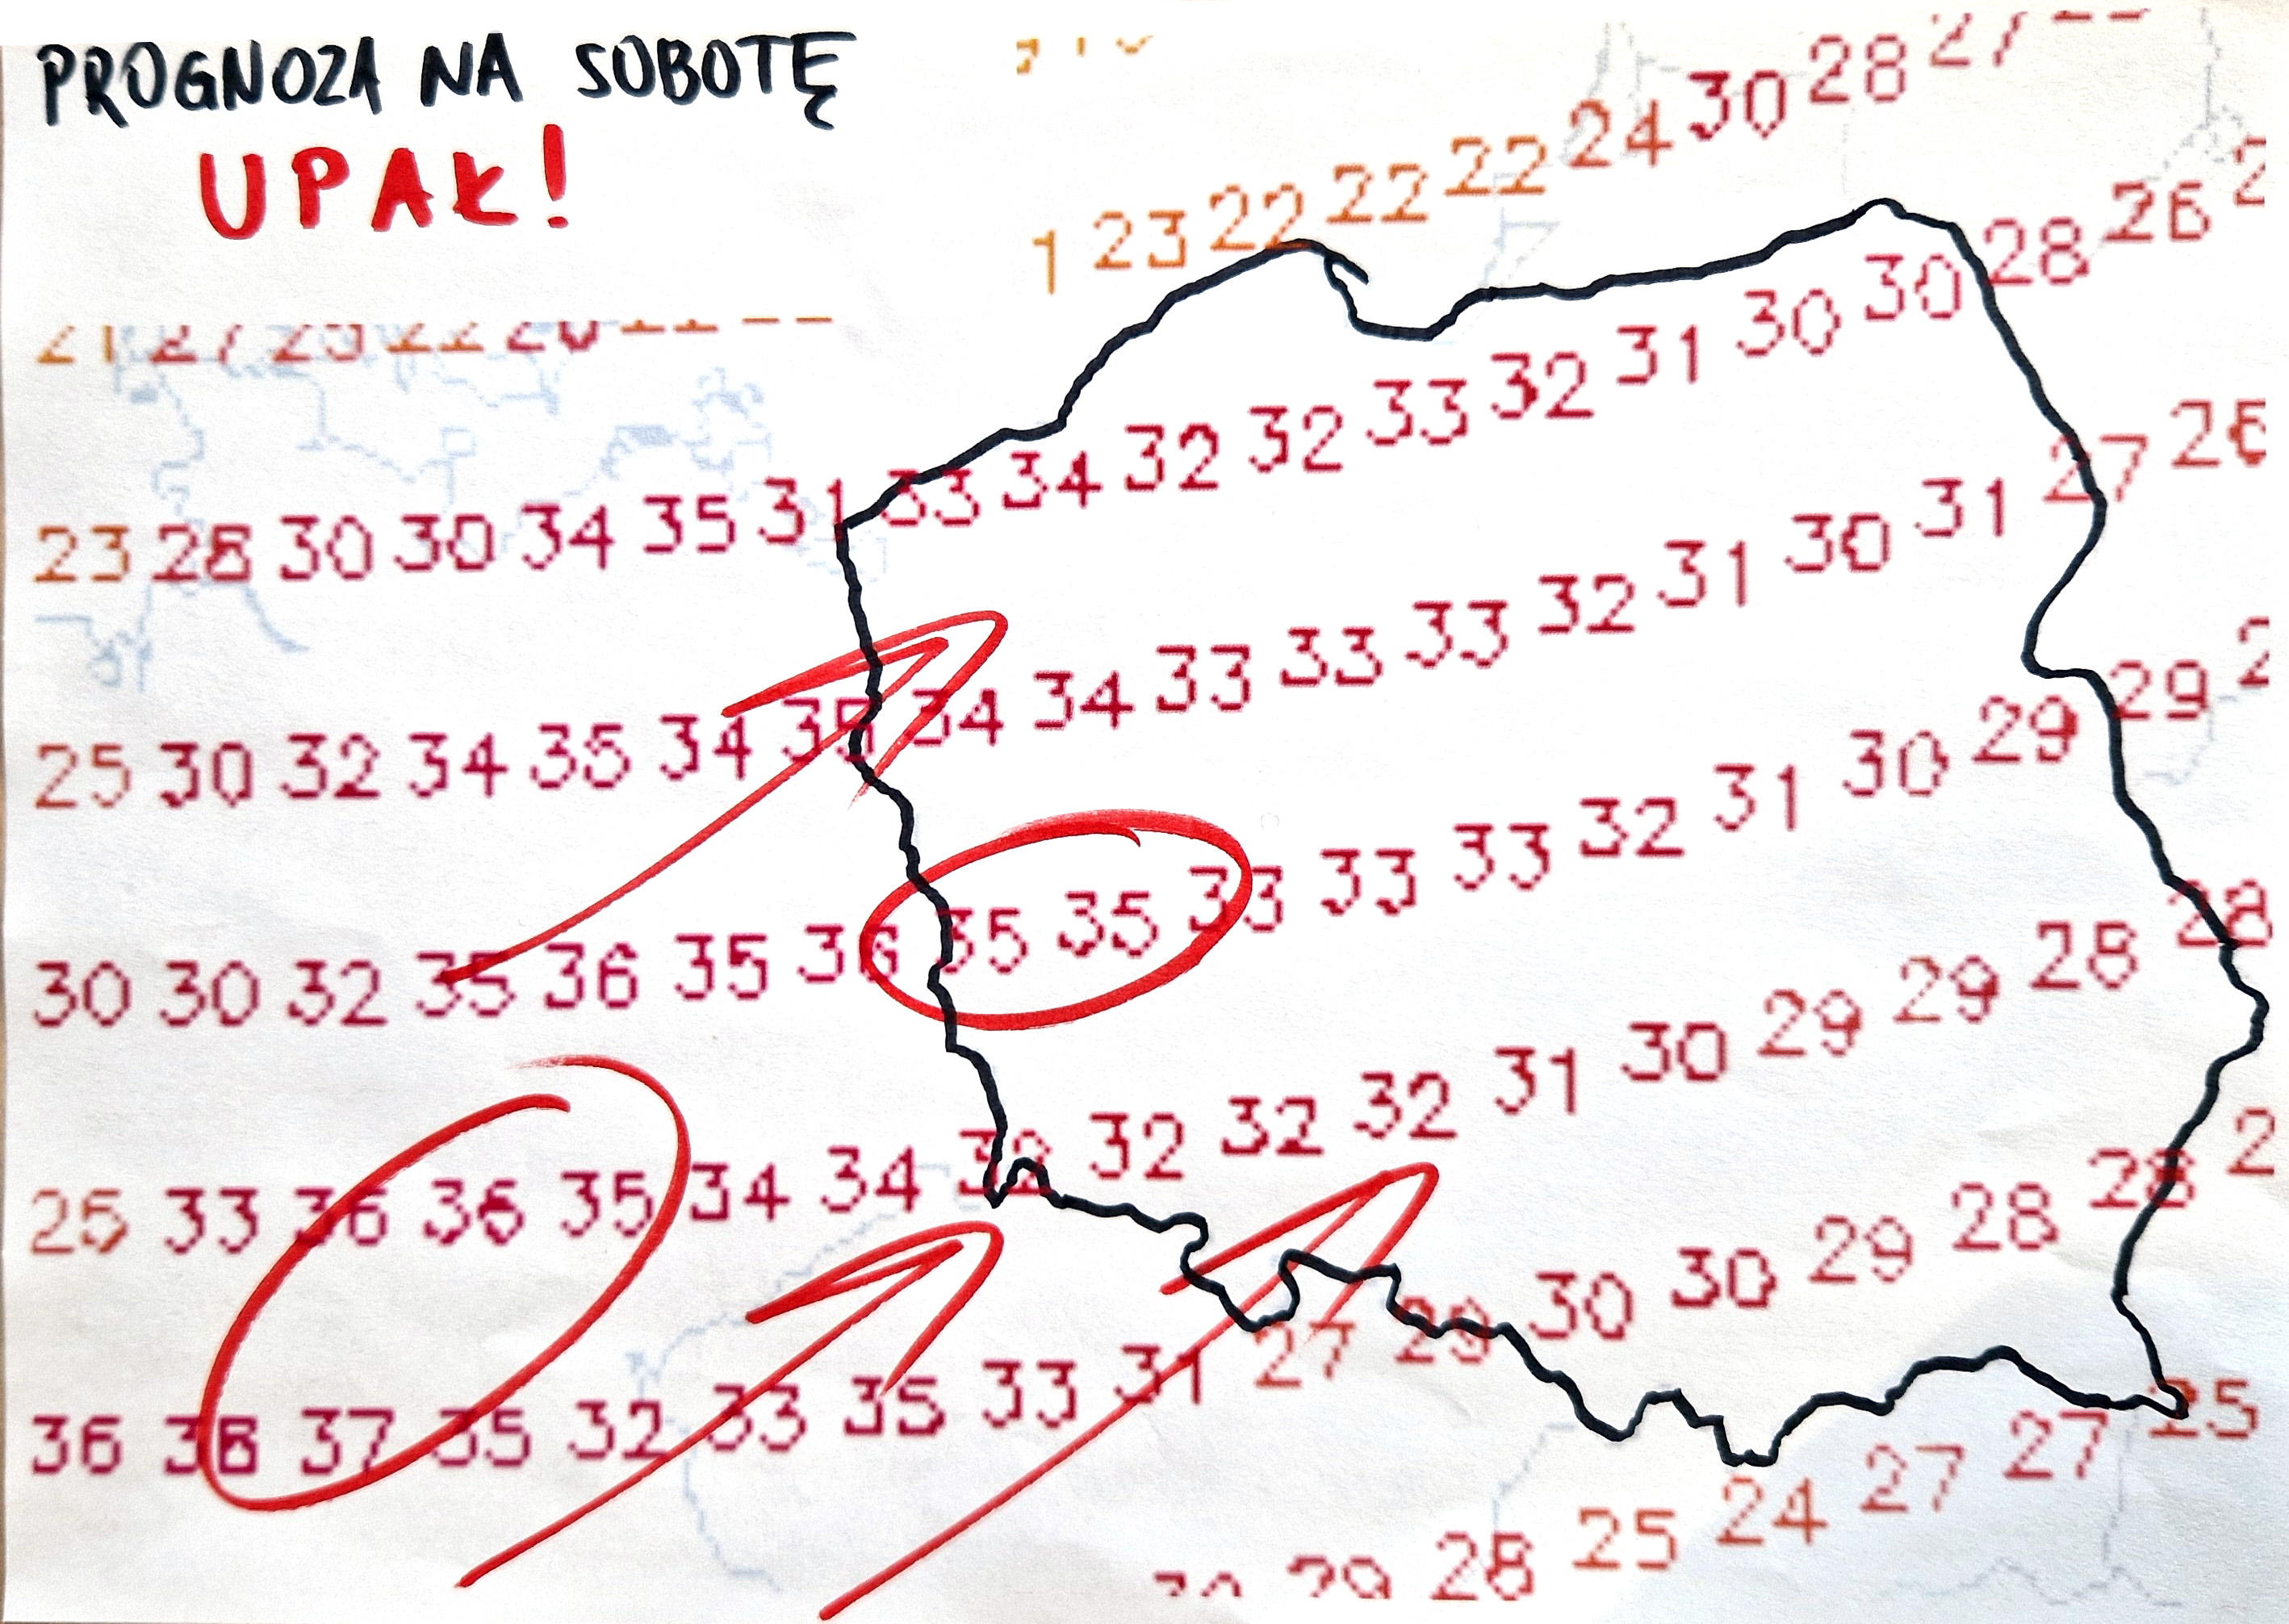 PROGNOZA NA SOBOTĘ
UPAŁ!
30 28 27
1 23 22 22 22 24
28 26
23 28 30 30 34 35 31 33 34 32 32 33 32 31 30 30
25 30 32 34 35 34 35 34 34 33 33 33 32 31 30 31 27
30 30 32 35 36 35 36 35 35 33 33 33 32 31 30 29 29
25 33 36 36 35 34 34 32 32 32 32 31 30 29 29 28 28
36 38 37 35 32 33 35 33 31 27 29 30 30 29 28 28
28 25 24 27 27 25